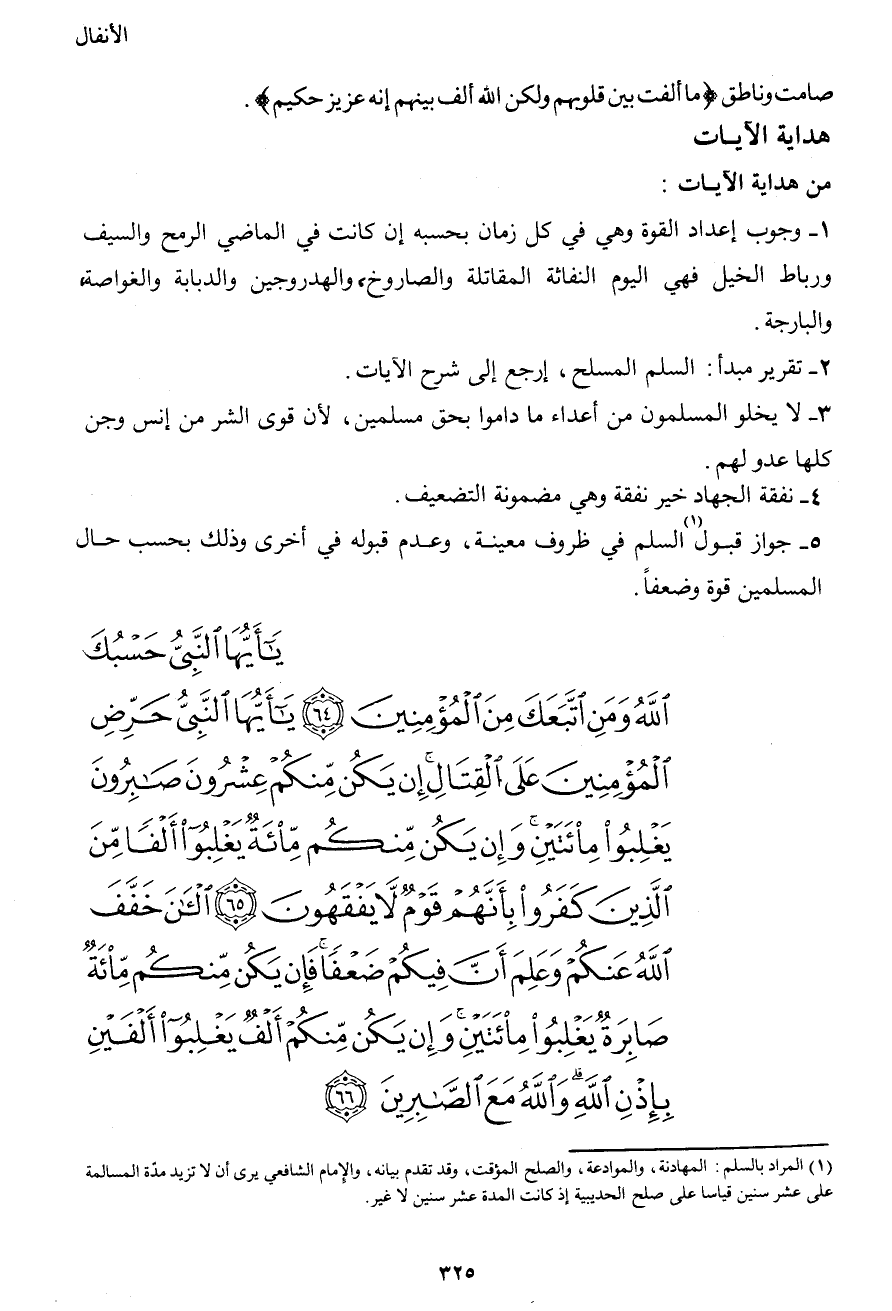 الأنفال
صامت وناطق ﴿ما ألفت بين قلوبهم ولكن الله ألف بينهم إنه عزيز حكيم﴾ .
هداية الآيــات
من هداية الآيــات :
١ـ وجوب إعداد القوة وهي في كل زمان بحسبه إن كانت في الماضي الرمح والسيف
ورباط الخيل فهي اليوم النفاثة المقاتلة والصاروخ، والهدروجين والدبابة والغواصة،
والبارجة .
٢ـ تقرير مبدأ : السلم المسلح ، إرجع إلى شرح الآيات .
٣ـ لا يخلو المسلمون من أعداء ما داموا بحق مسلمين، لأن قوى الشر من إنس وجن
كلها عدو لهم .
٤ـ نفقة الجهاد خير نفقة وهي مضمونة التضعيف .
٥ـ جواز قبـول(١) السلم في ظروف معينـة، وعـدم قبوله في أخرى وذلك بحسب حـال
المسلمين قوة وضعفاً .
يَـٰٓأَيُّهَا ٱلنَّبِىُّ حَسْبُكَ
ٱللَّهُ وَمَنِ ٱتَّبَعَكَ مِنَ ٱلْمُؤْمِنِينَ ٦٤ يَـٰٓأَيُّهَا ٱلنَّبِىُّ حَرِّضِ
ٱلْمُؤْمِنِينَ عَلَى ٱلْقِتَالِ ۚ إِن يَكُن مِّنكُمْ عِشْرُونَ صَـٰبِرُونَ
يَغْلِبُوا۟ مِا۟ئَتَيْنِ ۚ وَإِن يَكُن مِّنكُم مِّا۟ئَةٌ يَغْلِبُوٓا۟ أَلْفًا مِّنَ
ٱلَّذِينَ كَفَرُوا۟ بِأَنَّهُمْ قَوْمٌ لَّا يَفْقَهُونَ ٦٥ ٱلْـَٔـٰنَ خَفَّفَ
ٱللَّهُ عَنكُمْ وَعَلِمَ أَنَّ فِيكُمْ ضَعْفًا ۚ فَإِن يَكُن مِّنكُم مِّا۟ئَةٌ
صَابِرَةٌ يَغْلِبُوا۟ مِا۟ئَتَيْنِ ۚ وَإِن يَكُن مِّنكُمْ أَلْفٌ يَغْلِبُوٓا۟ أَلْفَيْنِ
بِإِذْنِ ٱللَّهِ ۗ وَٱللَّهُ مَعَ ٱلصَّـٰبِرِينَ ٦٦
(١) المراد بالسلم : المهادنة، والموادعة، والصلح المؤقت، وقد تقدم بيانه، والإمام الشافعي يرى أن لا تزيد مدّة المسالمة
على عشر سنين قياسا على صلح الحديبية إذ كانت المدة عشر سنين لا غير .
٣٢٥